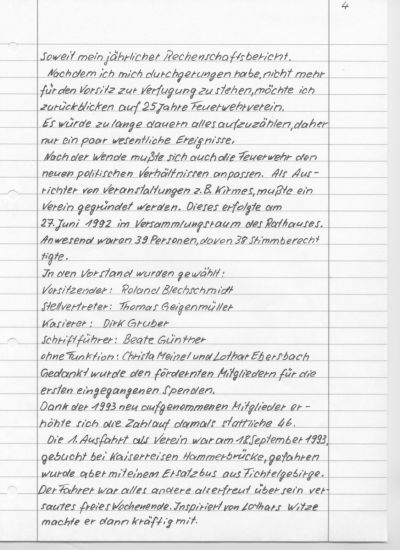 4
Soweit mein jährlicher Rechenschaftsbericht.
Nachdem ich mich durchgerungen habe, nicht mehr
für den Vorsitz zur Verfügung zu stehen, möchte ich
zurückblicken auf 25 Jahre Feuerwehrverein.
Es würde zu lange dauern alles aufzuzählen, daher
nur ein paar wesentliche Ereignisse.
Nach der Wende mußte sich auch die Feuerwehr den
neuen politischen Verhältnissen anpassen. Als Aus-
richter von Veranstaltungen z.B. Kirmes, mußte ein
Verein gegründet werden. Dieses erfolgte am
27. Juni 1992 im Versammlungsraum des Rathauses.
Anwesend waren 39 Personen, davon 38 Stimmberech
tigte.
In den Vorstand wurden gewählt:
Vorsitzender: Roland Blechschmidt
Stellvertreter: Thomas Geigenmüller
Kasierer: Dirk Gruber
Schriftführer: Beate Günther
ohne Funktion: Christa Meinel und Lothar Ebersbach
Gedankt wurde den fördernten Mitgliedern für die
ersten eingegangenen Spenden.
Dank der 1993 neu aufgenommenen Mitglieder er-
höhte sich die Zahl auf damals stattliche 46.
Die 1. Ausfahrt als Verein war am 18 September 1993,
gebucht bei Kaiserreisen Hammerbrücke, gefahren
wurde aber mit einem Ersatzbus aus Fichtelgebirge.
Der Fahrer war alles andere als erfreut über sein ver-
sautes freies Wochenende. Inspiriert von Lothars Witze
machte er dann kräftig mit.